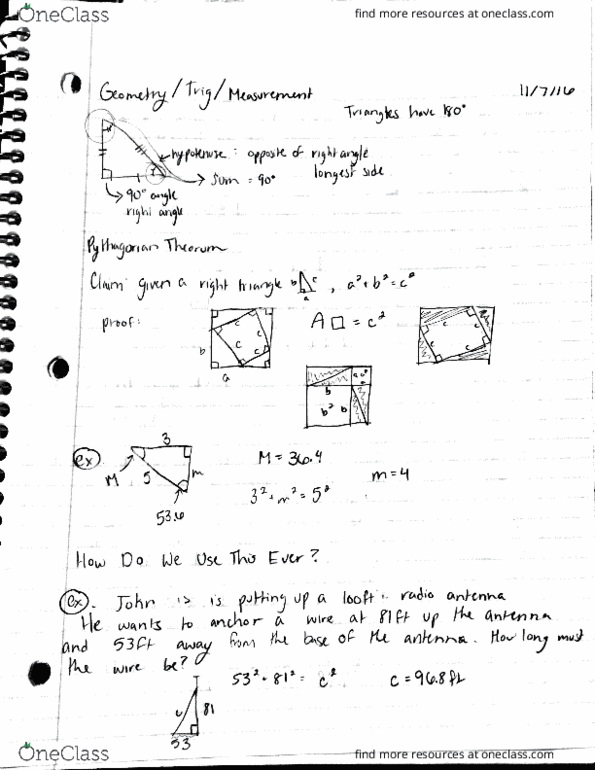 OneClass
find more resources at oneclass.com
Geometry/Trig/Measurement
11/7/16
Triangles have 180°
hypotenuse: opposite of right angle
longest side
Sum = 90°
90° angle
right angle
Pythagorian Theorum
Claim: given a right triangle b c a, a² + b² = c²
proof:
c
c
c
c
b
a
A □ = c²
c
c
c
c
a²
b
b² b
ex
3
M
5
m
53.6
M = 36.4
3² + m² = 5²
m = 4
How Do We Use This Ever?
ex. John is is putting up a 100ft. radio antenna
He wants to anchor a wire at 81ft up the antenna
and 53ft away from the base of the antenna. How long must
the wire be?
53² + 81² = c²
c = 96.8 ft
81
53
OneClass
find more resources at oneclass.com